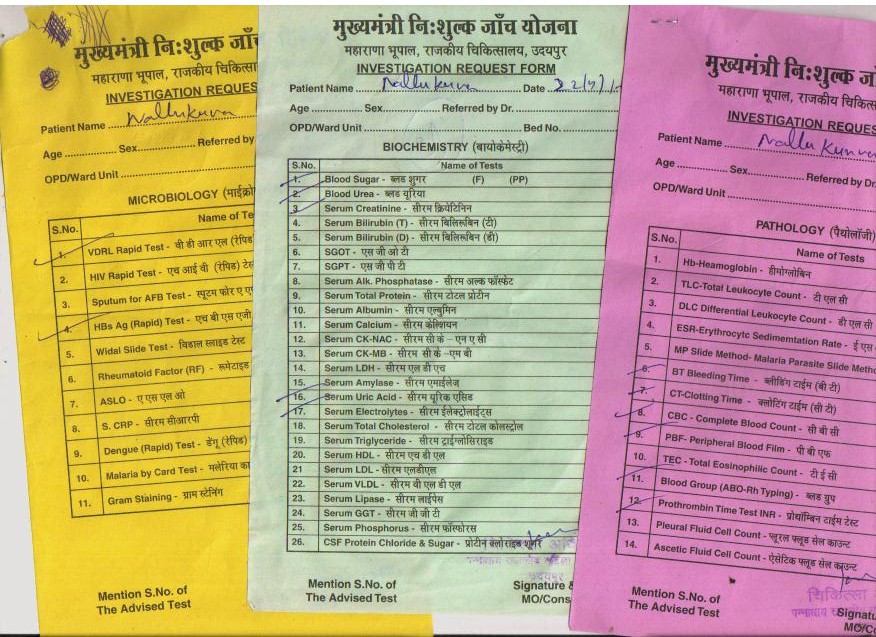 मुख्यमंत्री निःशुल्क जाँच
महाराणा भूपाल, राजकीय चिकित्सा
INVESTIGATION REQUES
Patient Name
Age Sex Referred by
OPD/Ward Unit
MICROBIOLOGY (माईक्रो
S.No. Name of Te
1. VDRL Rapid Test - वी डी आर एल (रेपिड
2. HIV Rapid Test - एच आई वी (रेपिड) टे
3. Sputum for AFB Test - स्पूटम फोर ए ए
4. HBs Ag (Rapid) Test - एच बी एस एजी
5. Widal Slide Test - विडाल स्लाइड टेस्ट
6. Rheumatoid Factor (RF) - रूमेटाइड
7. ASLO - ए एस एल ओ
8. S. CRP - सीरम सीआरपी
9. Dengue (Rapid) Test - डेंगू (रेपिड)
10. Malaria by Card Test - मलेरिया का
11. Gram Staining - ग्राम स्टेनिंग
Mention S.No. of
The Advised Test
मुख्यमंत्री निःशुल्क जाँच योजना
महाराणा भूपाल, राजकीय चिकित्सालय, उदयपुर
INVESTIGATION REQUEST FORM
Patient Name Date
Age Sex Referred by Dr.
OPD/Ward Unit Bed No.
BIOCHEMISTRY (बायोकेमेस्ट्री)
S.No. Name of Tests
1. Blood Sugar - ब्लड शुगर (F) (PP)
2. Blood Urea - ब्लड यूरिया
3. Serum Creatinine - सीरम क्रियेटिनिन
4. Serum Bilirubin (T) - सीरम बिलिरूबिन (टी)
5. Serum Bilirubin (D) - सीरम बिलिरूबिन (डी)
6. SGOT - एस जी ओ टी
7. SGPT - एस जी पी टी
8. Serum Alk. Phosphatase - सीरम अल्क फॉस्फेट
9. Serum Total Protein - सीरम टोटल प्रोटीन
10. Serum Albumin - सीरम एल्बुमिन
11. Serum Calcium - सीरम केल्शियन
12. Serum CK-NAC - सीरम सी के - एन ए सी
13. Serum CK-MB - सीरम सी के -एम बी
14. Serum LDH - सीरम एल डी एच
15. Serum Amylase - सीरम एमाईलेज
16. Serum Uric Acid - सीरम यूरिक एसिड
17. Serum Electrolytes - सीरम ईलेक्ट्रोलाईट्स
18. Serum Total Cholesterol - सीरम टोटल कोलस्ट्रोल
19. Serum Triglyceride - सीरम ट्राईग्लोसिराइड
20. Serum HDL - सीरम एच डी एल
21. Serum LDL - सीरम एलडीएल
22. Serum VLDL - सीरम वी एल डी एल
23. Serum Lipase - सीरम लाईपेस
24. Serum GGT - सीरम जी जी टी
25. Serum Phosphorus - सीरम फॉस्फोरस
26. CSF Protein Chloride & Sugar - प्रोटीन क्लोराइड शूगर
उदयपुर
Mention S.No. of Signature &
The Advised Test MO/Cons
मुख्यमंत्री निःशुल्क जाँ
महाराणा भूपाल, राजकीय चिकि
INVESTIGATION REQUES
Patient Name
Age Sex Referred by Dr.
OPD/Ward Unit
PATHOLOGY (पैथोलॉजी)
S.No. Name of Tests
1. Hb-Heamoglobin - हीमोग्लोबिन
2. TLC-Total Leukocyte Count - टी एल सी
3. DLC Differential Leukocyte Count - डी एल सी
4. ESR-Erythrocytc Sedimemtation Rate - ई एस
5. MP Slide Method- Malaria Parasite Slide Metho
6. BT Bleeding Time - ब्लीडिंग टाईम (बी टी)
7. CT-Clotting Time - क्लोटिंग टाईम (सी टी)
8. CBC - Complete Blood Count - सी बी सी
9. PBF- Peripheral Blood Film - पी बी एफ
10. TEC -Total Eosinophilic Count - टी ई सी
11. Blood Group (ABO-Rh Typing) - ब्लड ग्रुप
12. Prothrombin Time Test INR - प्रोथॉम्बिन टाईम टेस्ट
13. Pleural Fluid Cell Count - प्लूरल फ्लूड सेल काउन्ट
14. Ascetic Fluid Cell Count - ऐसेटिक फ्लूड सेल काउन्ट
चिकित्सा
Mention S.No. of Signatu
The Advised Test MO/Co